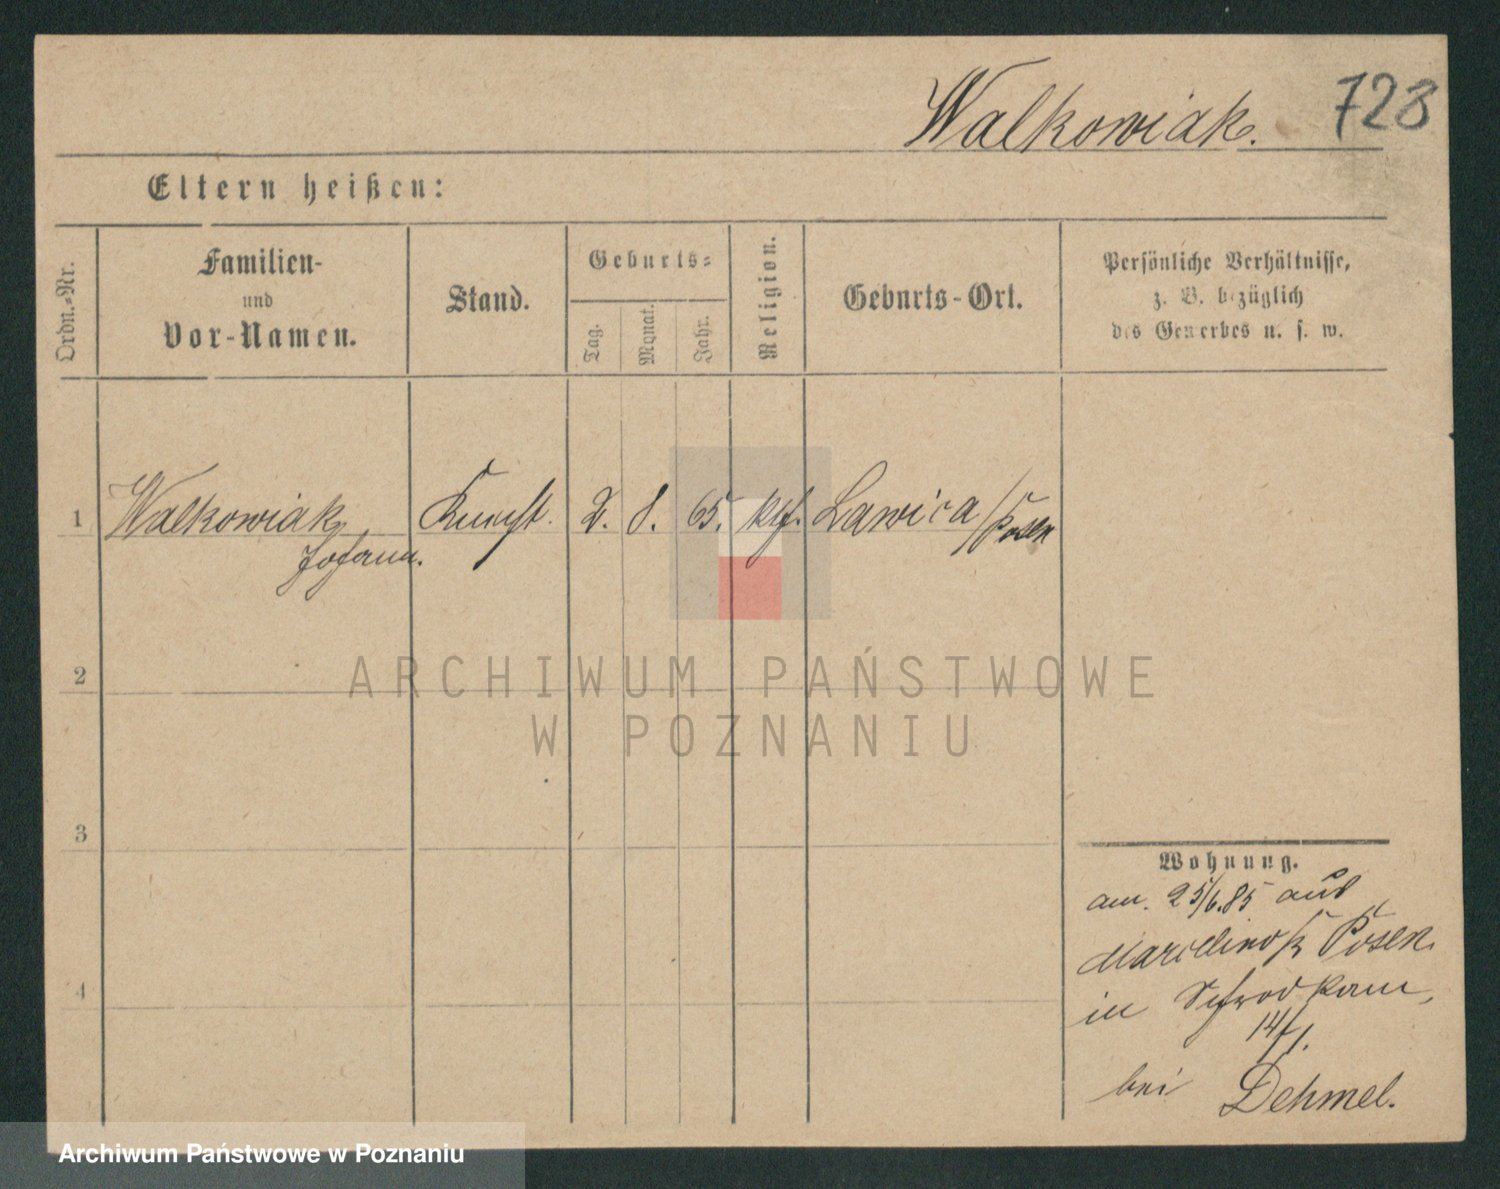 Walkowiak. 728
Eltern heißen:
Ordn.=Nr.
Familien-
und
Vor-Namen.
Stand.
Geburts=
Tag.
Monat.
Jahr.
Religion.
Geburts-Ort.
Persönliche Verhältnisse,
z. B. bezüglich
des Gewerbes u. s. w.
1 Walkowiak, 2. 8. 65. kth. Lawica/Posen
Johann.
2
3
4
Wohnung.
am 25/6.85 aus
Posen
in Schrodka
14/1.
bei Dehmel.
ARCHIWUM PAŃSTWOWE
W POZNANIU
Archiwum Państwowe w Poznaniu